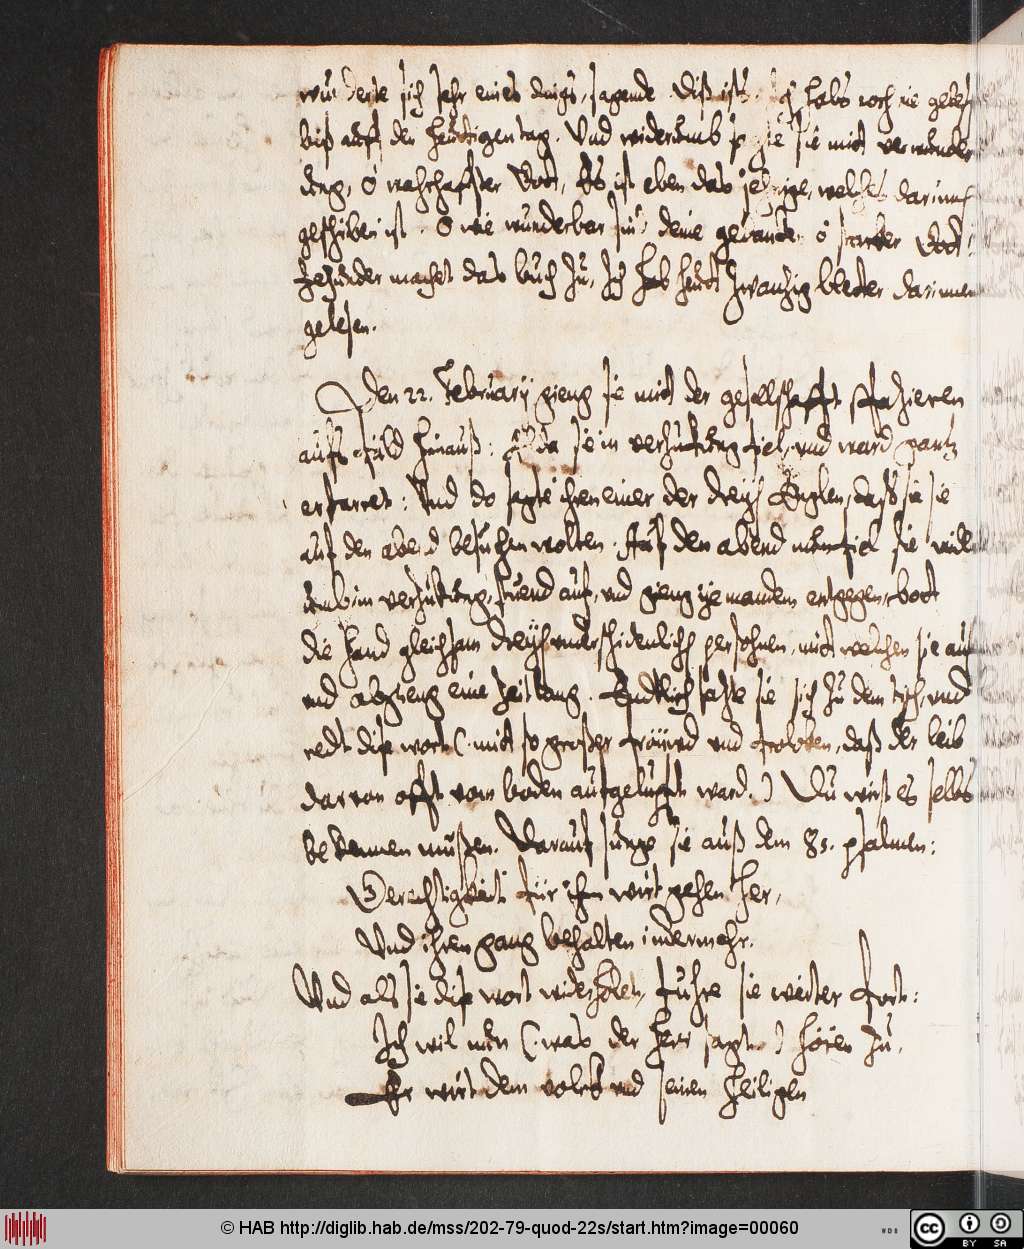 wunderte sich sehr eines dings, sagende. Diß ists. Ich habs noch nie geles
biß auff den heuttigen tag. Und widerumb sie mitt verwunder
dung, ô wahrhafter Gott, Es ist eben das jehnige, welches darinnen
geschriben ist. O wie wunderbar sind deine gedancken ô starcker Gott!
Jezunder machet das buch zu, Ich hab heutt zwanzig bletter darinnen
gelesen.
Den 22. Februarij gieng sie mitt der gesellschafft spazieren
auffs fäld hinauß: Alda sie in verzuckung fiel, und ward gantz
erstarret: Und do sagte ihren einer der dreÿ Englen, daß sie sie
auf den abend besuchen wolten. Auf den abend nun fiel sie wid
umb in verzuckung, stuend auf, und gieng jemandem entgegen, bott
die hand gleichsam dreÿ underschidenlich personen, mitt welchen sie auf
und abgieng eine zeitlang. Endtlich satzte sie sich zu dem tisch, und
redt dise wort (mitt so großer fröüwd und froloken, daß der leib
darvon offt vom boden aufgelupfft ward.) Du wirst es selbs
bekennen müßen. Darauf sunge sie auß dem 85. psalmen:
Gerechtigkeit für ihm wirt gehen her,
Und ihren gang behalten immermehr.
Und als sie dise wort widerholet, fuhre sie weiter fort:
Ich wil nun (was der Herr sagt) hören zu,
Er wirt dem volck und seinen heiligen
© HAB http://diglib.hab.de/mss/202-79-quod-22s/start.htm?image=00060
WDB
cc BY SA